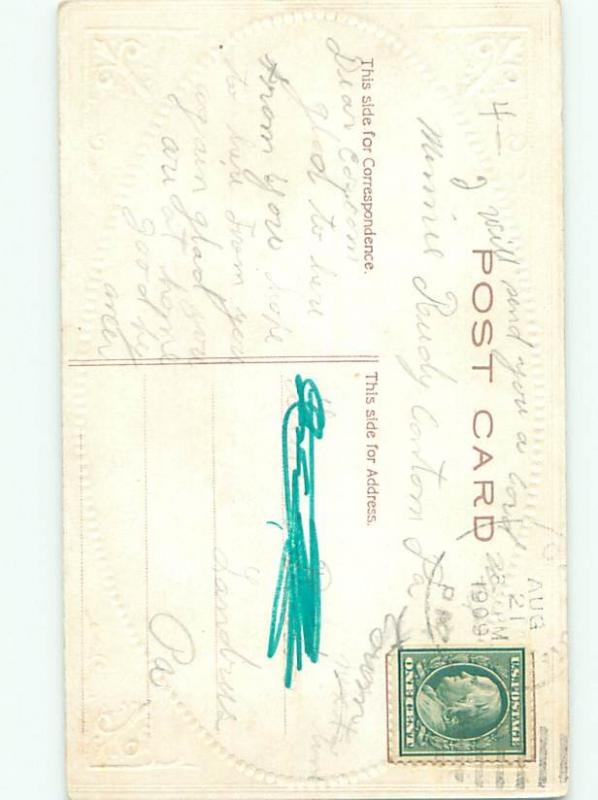 4—
I will send you a
POST CARD
Minnie Rudy Canton Pa
AUG
21
M
1909
U.S. POSTAGE
ONE CENT
This side for Correspondence.
Dear
glad to here
from you hope
to here from you
again glad you
are at home
good by
This side for Address.
Landrus
Pa